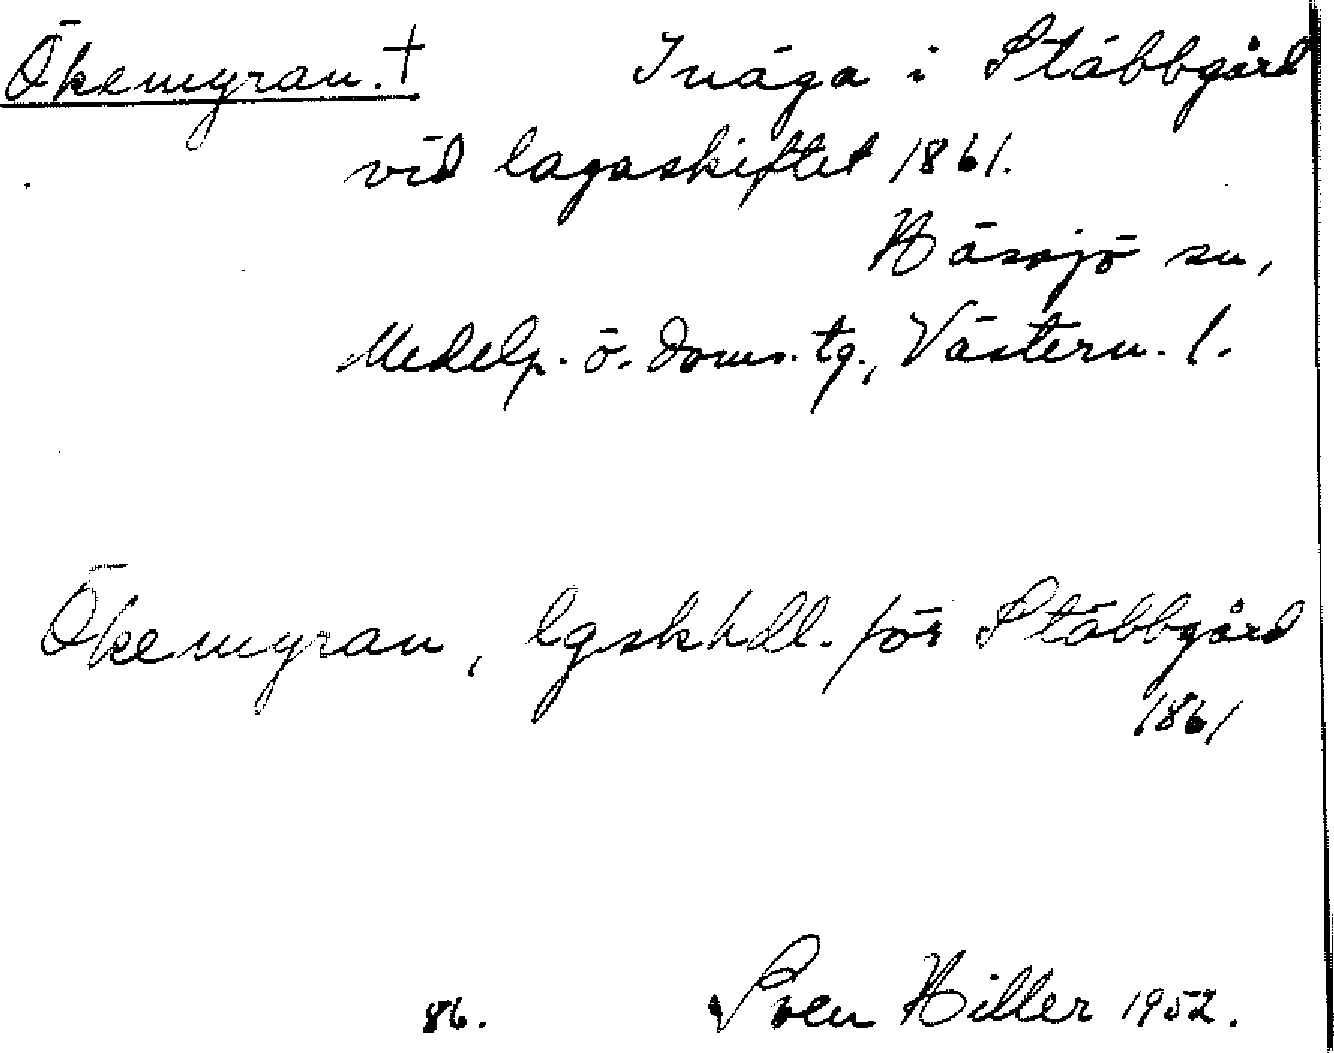 Ökemyran.† Inäga i Stäbbgård
vid lagaskiftet 1861.
Hässjö sn,
Medelp. ö. doms. tg., Västern. l.
Ökemyran, lgskhdl. för Stäbbgård
1861
86. Sven Hiller 1952.